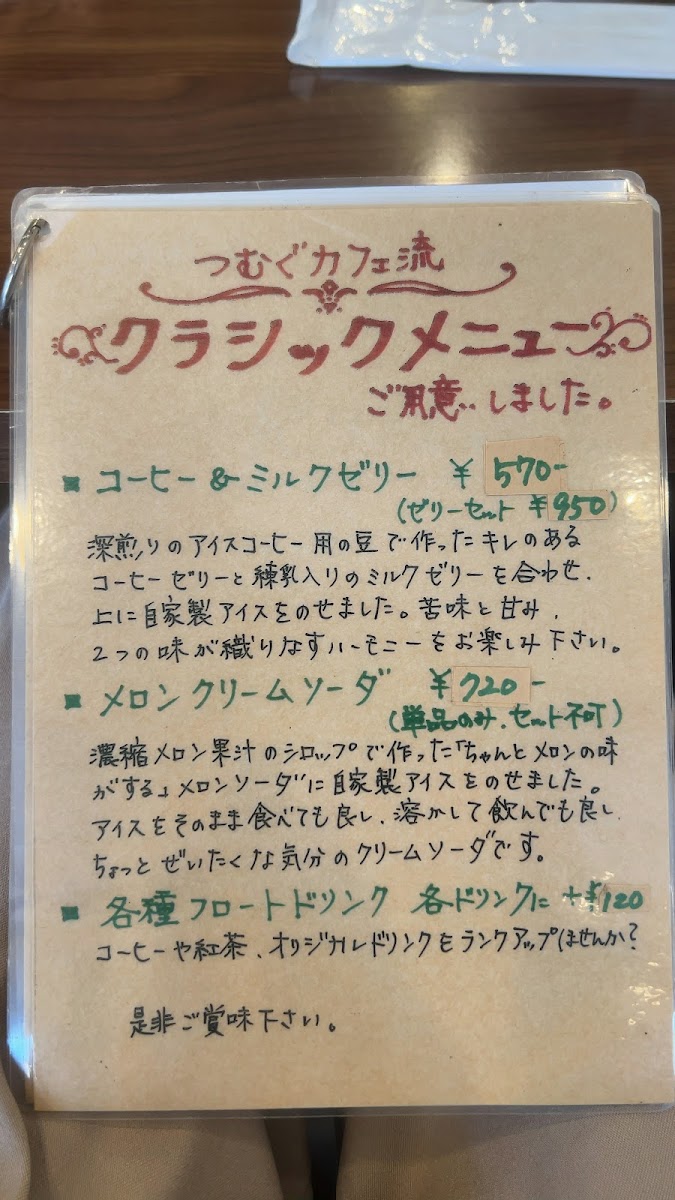 つむぐカフェ流
クラシックメニュー
ご用意‥しました。
■ コーヒー&ミルクゼリー ¥570-
(ゼリーセット ¥950)
深煎りのアイスコーヒー用の豆で作ったキレのある
コーヒーゼリーと練乳入りのミルクゼリーを合わせ、
上に自家製アイスをのせました。苦味と甘み、
2つの味が織りなすハーモニーをお楽しみ下さい。
■ メロンクリームソーダ ¥720-
(単品のみ、セット不可)
濃縮メロン果汁のシロップで作った「ちゃんとメロンの味
がする」メロンソーダに自家製アイスをのせました。
アイスをそのまま食べても良し、溶かして飲んでも良し、
ちょっとぜいたくな気分のクリームソーダです。
■ 各種フロートドリンク 各ドリンクに +¥120
コーヒーや紅茶、オリジナルドリンクをランクアップしませんか?
是非ご賞味下さい。